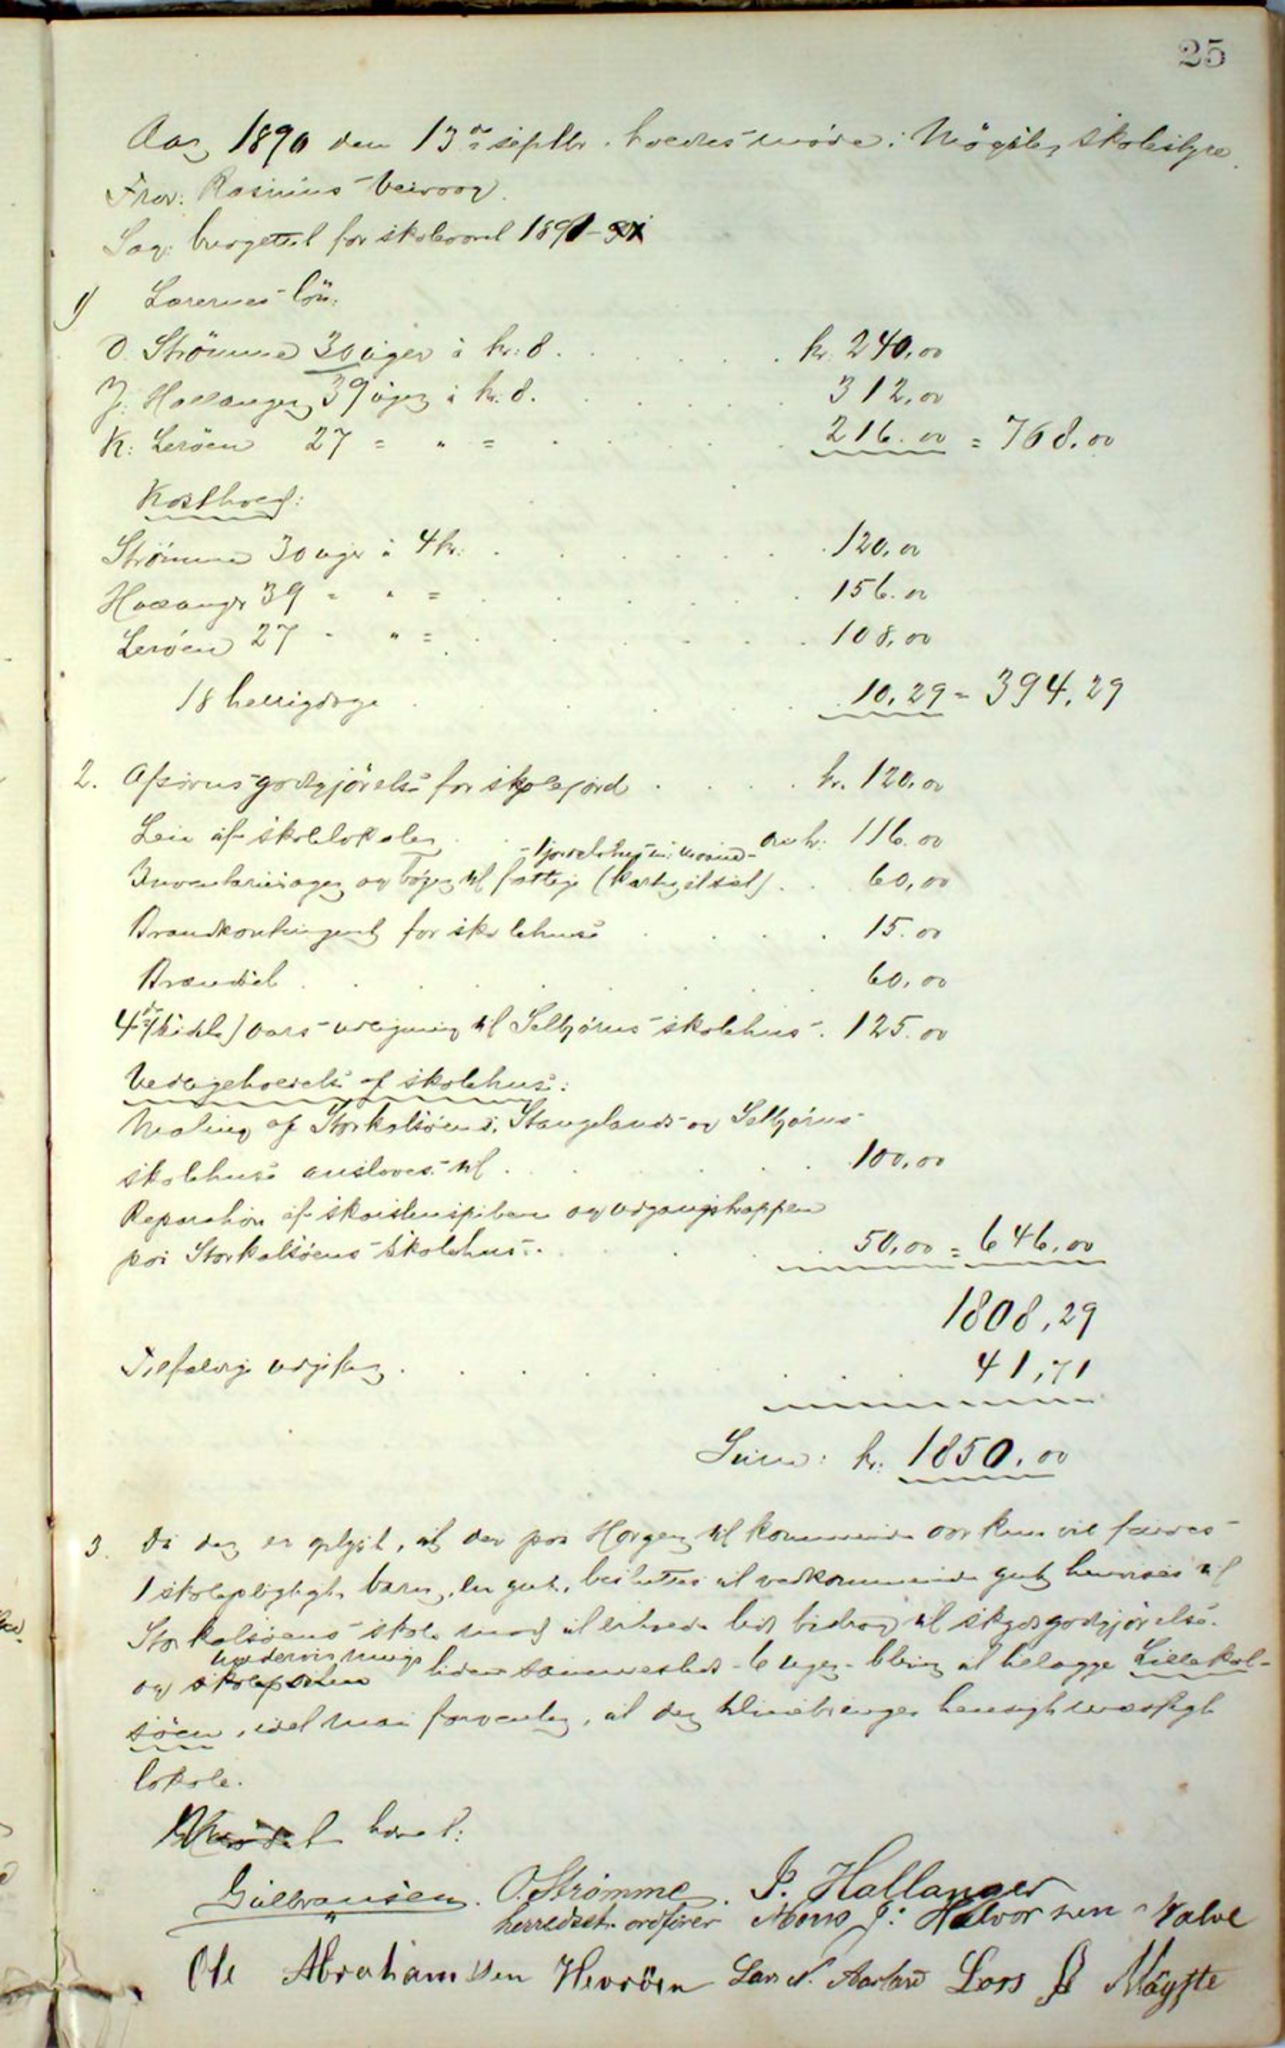 25
Aar 1890 den 13de septbr. holdtes møde i Møgster skolestyre.
Frav: Rasmus Veivaag.
Sag: budgettet for skoleaaret 1891
1) Lærernes løn:
O. Strömme 30 uger à kr: 8. kr. 240,00
J: Hallanger 39 uger à kr: 8. 312,00
K: Leröen 27 = „ = 216.00 = 768.00
Kosthold:
Strömme 30 uger à 4 kr: 120,00
Hallanger 39 - „ = 156.00
Leröen 27 - „ = 108,00
18 helligdage 10,29 = 394,29
2. Afsavnsgodtgjörelse for skolejord kr. 120,00
Leie af skolelokaler kr: 116.00
Inventariesager og bøger til fattige 60,00
Brandkontingent for skolehuse 15.00
Brændsel 60,00
4de (sidste) aars udligning til Selbjørns skolehus. 125.00
Vedligeholdelse af skolehuse:
Maling af Storkalsöens, Stangelands og Selbjörns
skolehuse ansloves til 100,00
Reparation af skorstenspiben og udgangstrappen
paa Storkalsöens skolehus 50,00 = 646,00
1808,29
Tilfældige udgifter 41,71
Sum: kr: 1850,00
3. Da det er oplyst, at der paa Horgen til kommende aar kun vil findes
1 skolepligtigt barn, en gut, besluttes at vedkommende gut henvises til
Storkalsöens skole mod at erholde lidt bidrag til skydsgodtgjörelse
undervisnings
og tiden sammesteds - 6 uger - bliver at tillægge Lillekal-
söen, idet man forventer, at der tilveiebringes hensigtsmæssigt
lokale.
hævet:
Gullbransen. O. Strömme. J. Hallanger
herredsst. ordförer Mons J: Halvorsen Valve
Ole Abrahamsen Hevröen Lars N. Aarland Lars Møgste